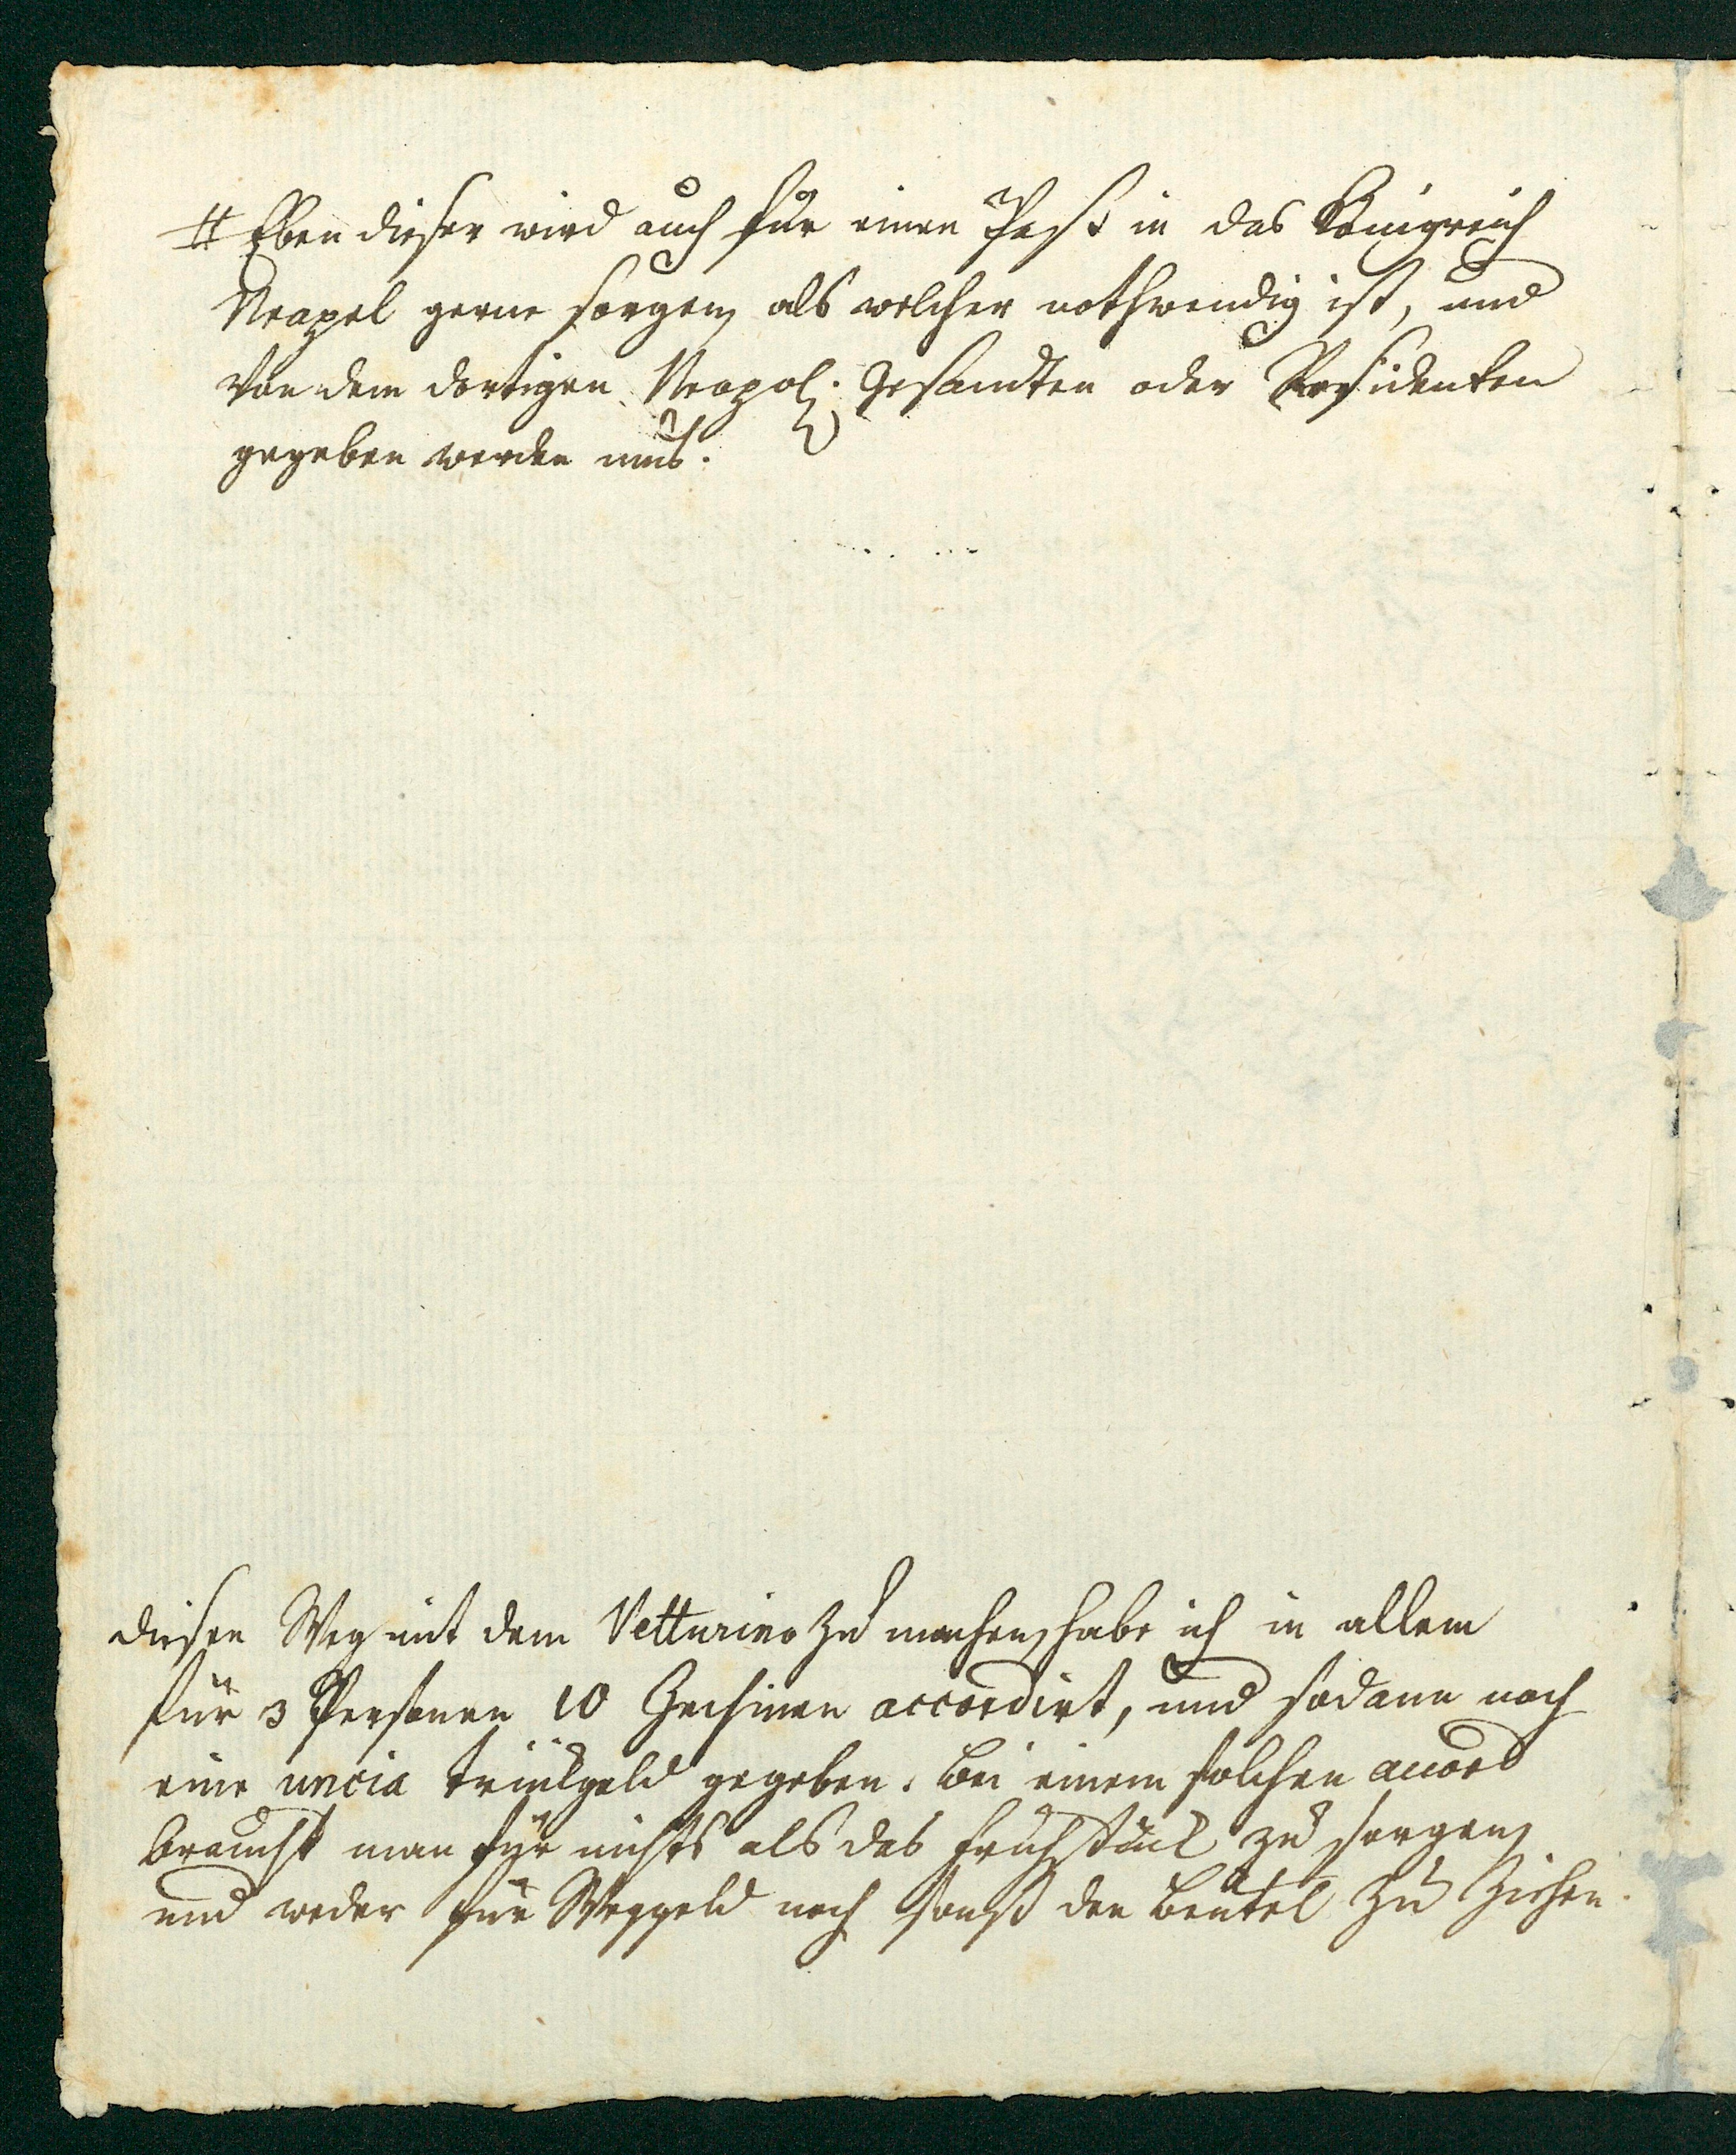 # Eben dieser wird auch für einen Paß in das Königreich
Neapel gerne sorgen, als welcher nothwendig ist, und
von dem dortigen Neapol. Gesandten oder Residenten
gegeben werden mus.
diesen Weg mit dem Vetturino zu machen, habe ich in allem
für 3 Personen 10 Zechinen accordirt, und sodann noch
eine uncia trinkgeld gegeben. Bei einem solchen accord
braucht man für nichts als das Frühstück zu sorgen,
und weder für Weggeld noch sonst den Beutel zu ziehen.